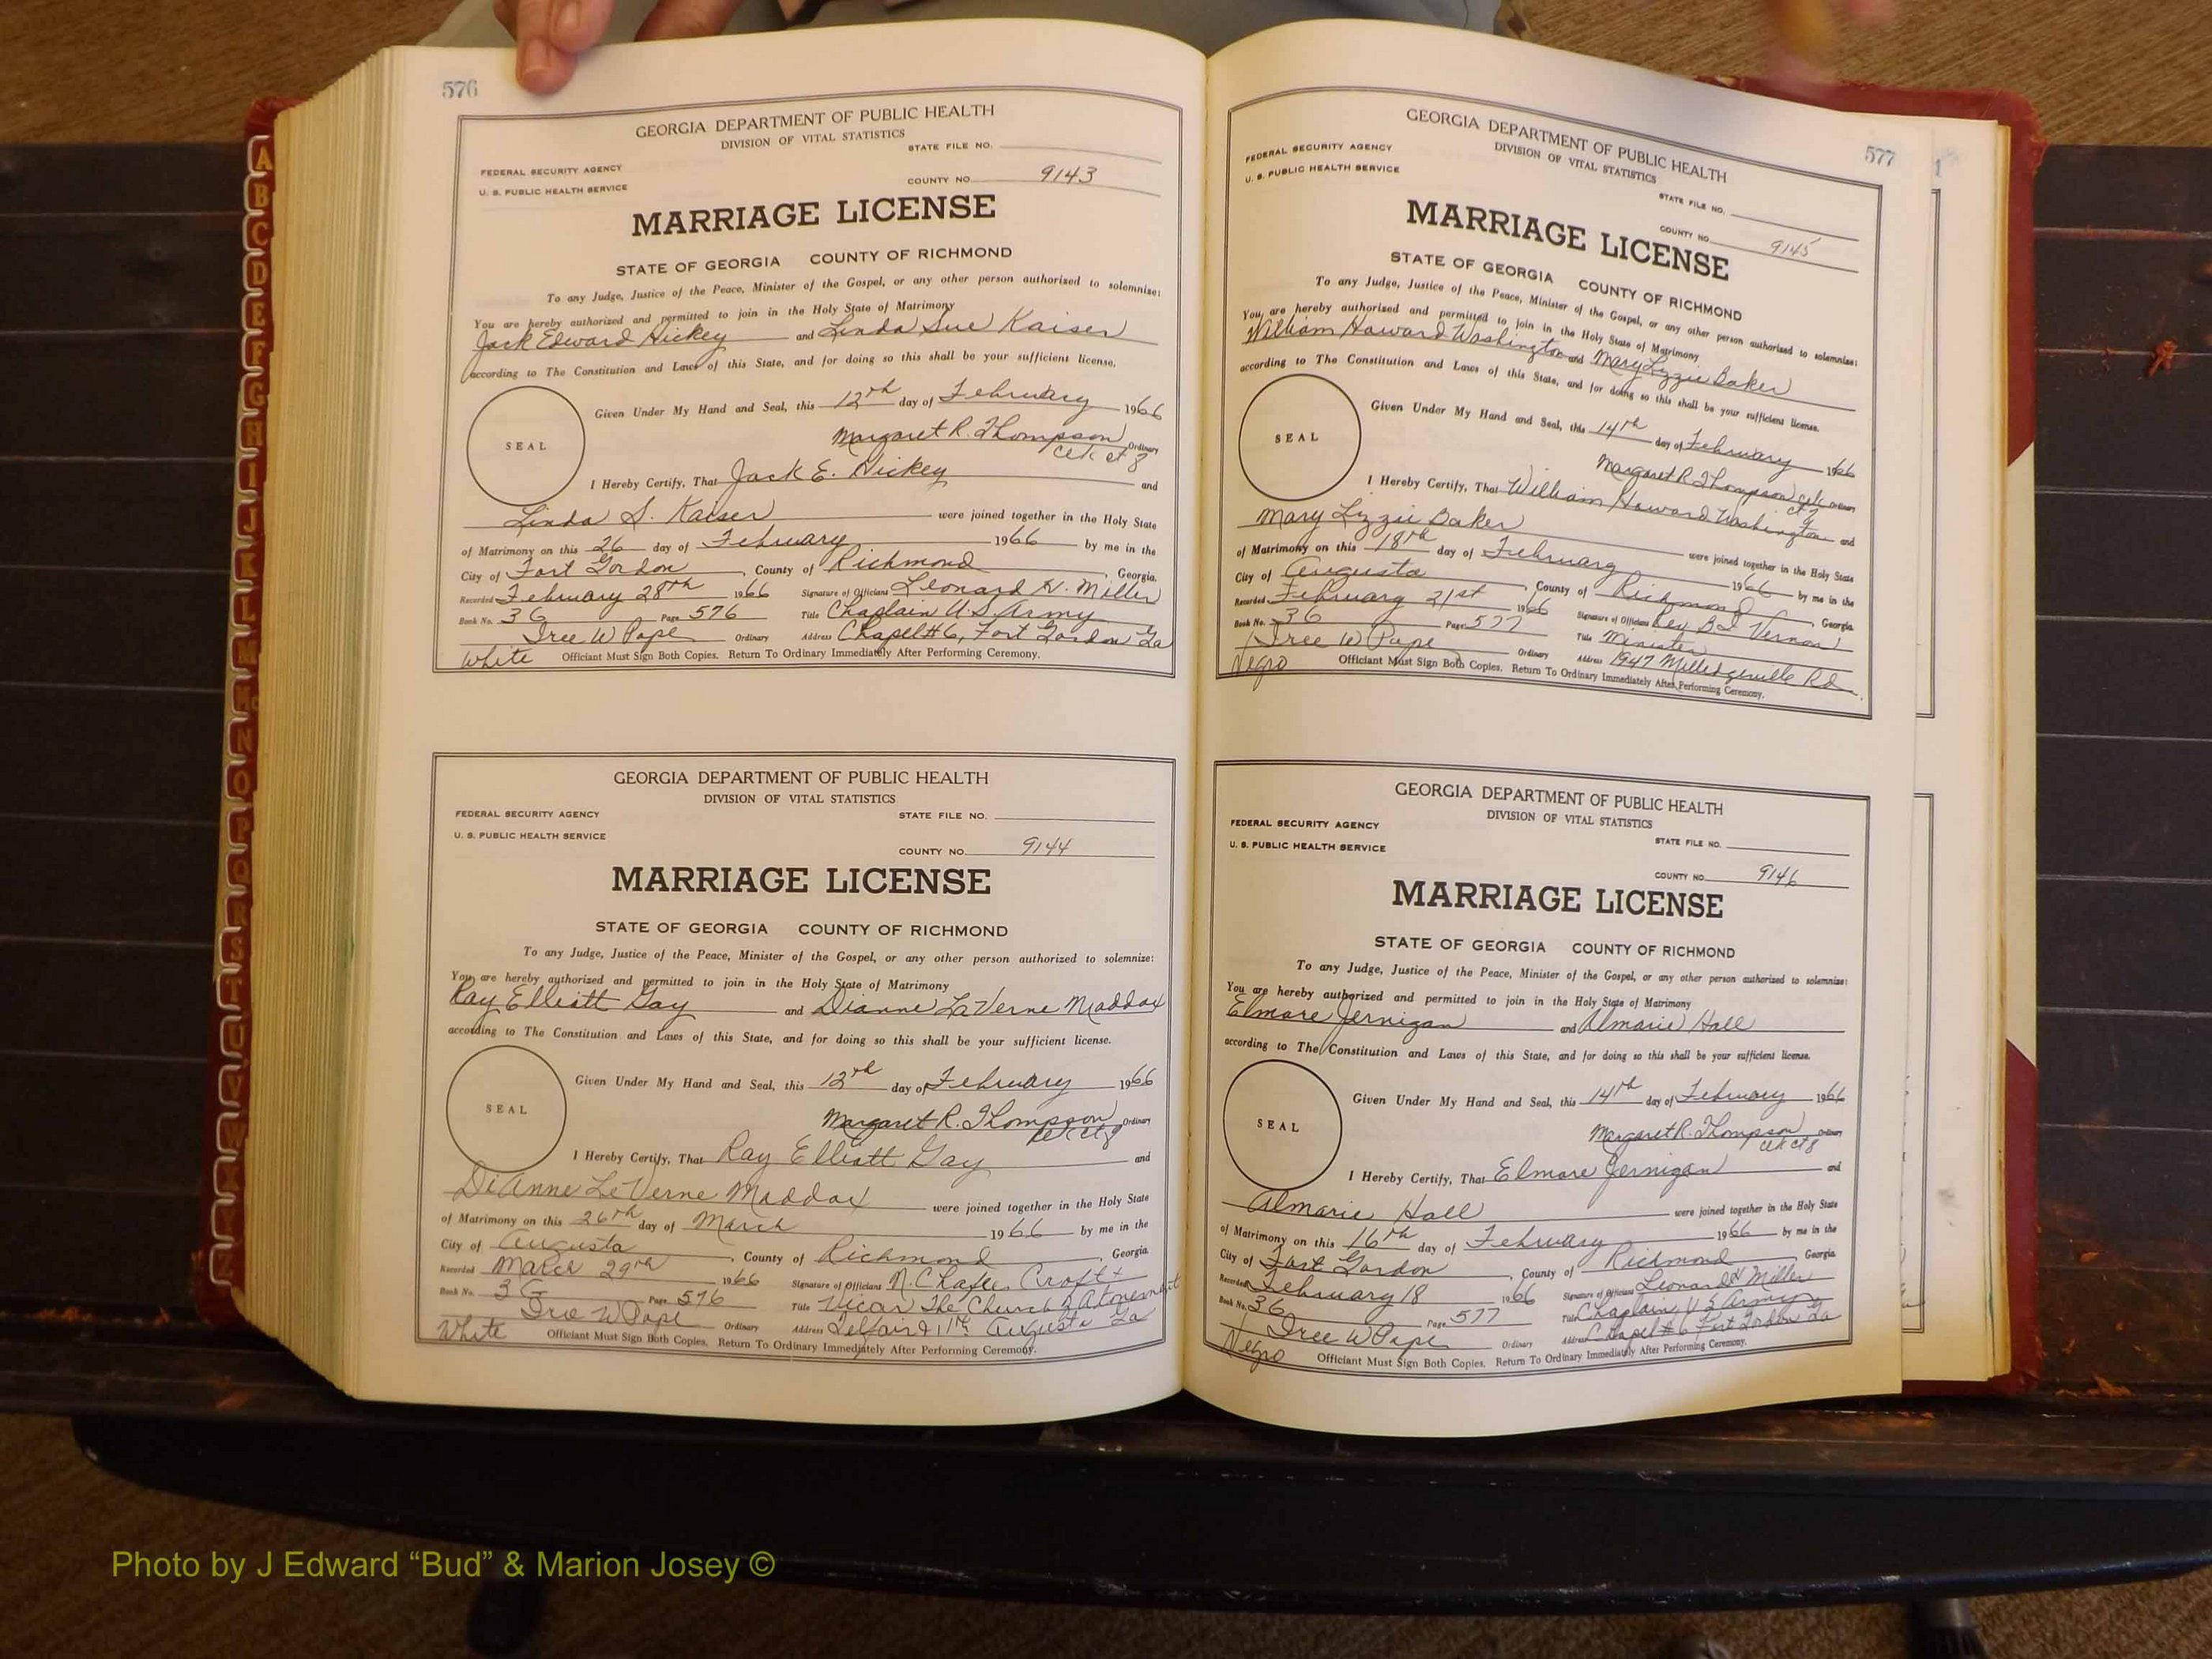 576
GEORGIA DEPARTMENT OF PUBLIC HEALTH
DIVISION OF VITAL STATISTICS
STATE FILE NO.
FEDERAL SECURITY AGENCY
U. S. PUBLIC HEALTH SERVICE
COUNTY NO. 9143
MARRIAGE LICENSE
STATE OF GEORGIA COUNTY OF RICHMOND
To any Judge, Justice of the Peace, Minister of the Gospel, or any other person authorized to solemnize:
You are hereby authorized and permitted to join in the Holy State of Matrimony
Jack Edward Hickey and Linda Sue Kaiser
according to The Constitution and Laws of this State, and for doing so this shall be your sufficient license.
SEAL
Given Under My Hand and Seal, this 12th day of February 1966
Margaret R. Thompson Ordinary
I Hereby Certify, That Jack E. Hickey and
Linda S. Kaiser were joined together in the Holy State
of Matrimony on this 26 day of February 1966 by me in the
City of Fort Gordon, County of Richmond, Georgia.
Recorded February 28th 1966 Signature of Officiant Leonard H. Miller
Book No. 3G Page 576 Title Chaplain U.S. Army
Iree W Pope Ordinary Address Chapel #6, Fort Gordon Ga
White Officiant Must Sign Both Copies. Return To Ordinary Immediately After Performing Ceremony.
GEORGIA DEPARTMENT OF PUBLIC HEALTH
DIVISION OF VITAL STATISTICS
FEDERAL SECURITY AGENCY STATE FILE NO.
U. S. PUBLIC HEALTH SERVICE
COUNTY NO. 9144
MARRIAGE LICENSE
STATE OF GEORGIA COUNTY OF RICHMOND
To any Judge, Justice of the Peace, Minister of the Gospel, or any other person authorized to solemnize:
You are hereby authorized and permitted to join in the Holy State of Matrimony
Ray Elliott Gay and Dianne LaVerne Maddox
according to The Constitution and Laws of this State, and for doing so this shall be your sufficient license.
SEAL
Given Under My Hand and Seal, this 12th day of February 1966
Margaret R. Thompson Ordinary
I Hereby Certify, That Ray Elliott Gay and
DiAnne LeVerne Maddox were joined together in the Holy State
of Matrimony on this 26th day of March 1966 by me in the
City of Augusta, County of Richmond, Georgia
Recorded March 29th 1966 Signature of Officiant Croft
Book No. 3G Page 576 Title Vicar The Church of Atonement
Iree W Pope Ordinary Address Telfair & 11th Augusta Ga
White Officiant Must Sign Both Copies. Return To Ordinary Immediately After Performing Ceremony.
577
GEORGIA DEPARTMENT OF PUBLIC HEALTH
DIVISION OF VITAL STATISTICS
FEDERAL SECURITY AGENCY
U. S. PUBLIC HEALTH SERVICE
STATE FILE NO.
COUNTY NO. 9145
MARRIAGE LICENSE
STATE OF GEORGIA COUNTY OF RICHMOND
To any Judge, Justice of the Peace, Minister of the Gospel, or any other person authorized to solemnize:
You are hereby authorized and permitted to join in the Holy State of Matrimony
William Howard Washington and Mary Lizzie Baker
according to The Constitution and Laws of this State, and for doing so this shall be your sufficient license.
SEAL
Given Under My Hand and Seal, this 14th day of February 1966
Margaret R Thompson Ordinary
I Hereby Certify, That William Howard Washington and
Mary Lizzie Baker were joined together in the Holy State
of Matrimony on this 18th day of February 1966 by me in the
City of Augusta, County of Richmond, Georgia
Recorded February 21st 1966 Signature of Officiant Rev B.L. Vernon
Book No. 3G Page 577 Title Minister
Iree W Pope Ordinary Address 1947 Milledgeville Rd.
Negro Officiant Must Sign Both Copies. Return To Ordinary Immediately After Performing Ceremony.
GEORGIA DEPARTMENT OF PUBLIC HEALTH
DIVISION OF VITAL STATISTICS
FEDERAL SECURITY AGENCY
U. S. PUBLIC HEALTH SERVICE
STATE FILE NO.
COUNTY NO. 9146
MARRIAGE LICENSE
STATE OF GEORGIA COUNTY OF RICHMOND
To any Judge, Justice of the Peace, Minister of the Gospel, or any other person authorized to solemnize:
You are hereby authorized and permitted to join in the Holy State of Matrimony
Elmore Jernigan and Almarie Hall
according to The Constitution and Laws of this State, and for doing so this shall be your sufficient license.
SEAL
Given Under My Hand and Seal, this 14th day of February 1966
Margaret R. Thompson Ordinary
I Hereby Certify, That Elmore Jernigan and
Almarie Hall were joined together in the Holy State
of Matrimony on this 16th day of February 1966 by me in the
City of Fort Gordon, County of Richmond Georgia
Recorded February 18 1966 Signature of Officiant Leonard H Miller
Book No. 3G Page 577 Title Chaplain U S Army
Iree W Pope Ordinary Address Chapel #6 Fort Gordon Ga
Negro Officiant Must Sign Both Copies. Return To Ordinary Immediately After Performing Ceremony.
A
B
C
D
E
F
G
H
I
J
K
L
M
Mc
N
O
P
Q
R
S
T
U
V
W
Photo by J Edward “Bud” & Marion Josey ©